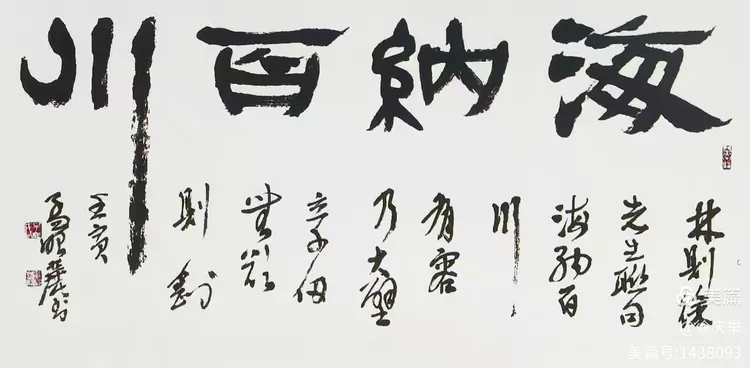 海納百川
林則徐
先生聯句
海納百
川
有容
乃大壁
立千仞
無欲
則剛
壬寅
美篇
美篇号:1438093